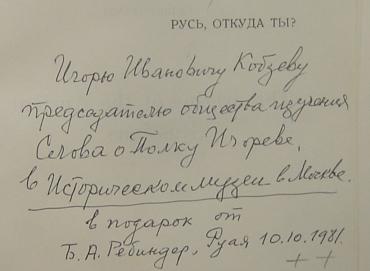 РУСЬ, ОТКУДА ТЫ?
Игорю Ивановичу Кобзеву
председателю общества изучения
Слова о Полку Игореве,
в Историческом музеи в Москве.
в подарок от
Б. А. Ребиндер, Руая 10.10.1981.